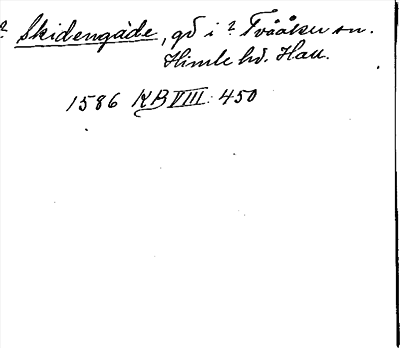 ? Skidengåde, gd i ? Tvååker sn.
Himle hd. Hall.
1586 KB VIII: 450